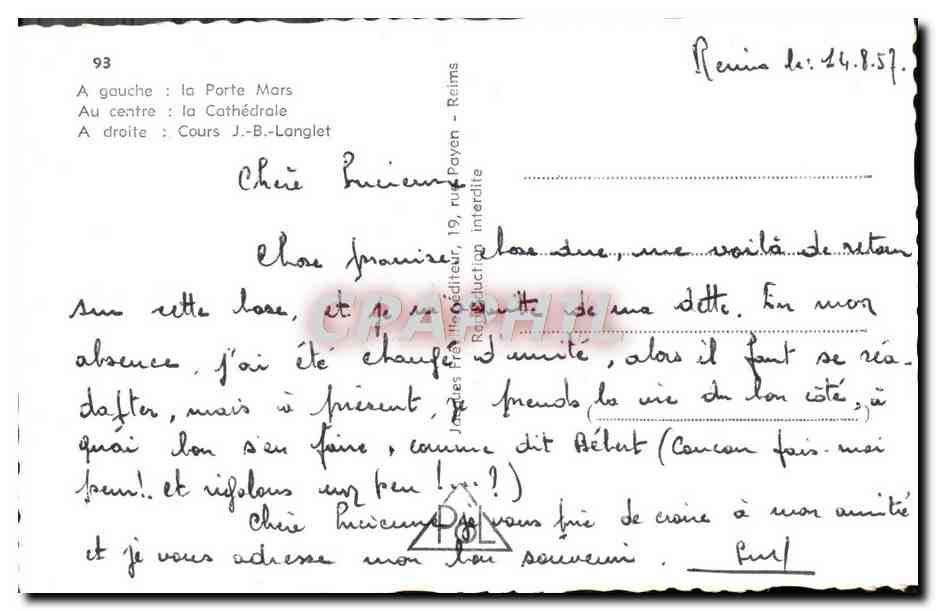 93
Reims le : 14.8.57.
A gauche : la Porte Mars
Au centre : la Cathédrale
A droite : Cours J.-B.-Langlet
Jacques Fréville éditeur, 19, rue Payen - Reims
Reproduction interdite
Chère Lucienne
Chose promise, chose due, me voilà de retour
sur cette base, et je m'acquitte de ma dette. En mon
absence, j'ai été changé d'unité, alors il faut se réa-
dapter, mais à présent, je prends la vie du bon côté, à
quoi bon s'en faire, comme dit Bébert (Coucou fais-moi
peur!. et rigolons un peu !...?)
Chère Lucienne je vous prie de croire à mon amitié
et je vous adresse mon bon souvenir.
CPAPHIL
POL